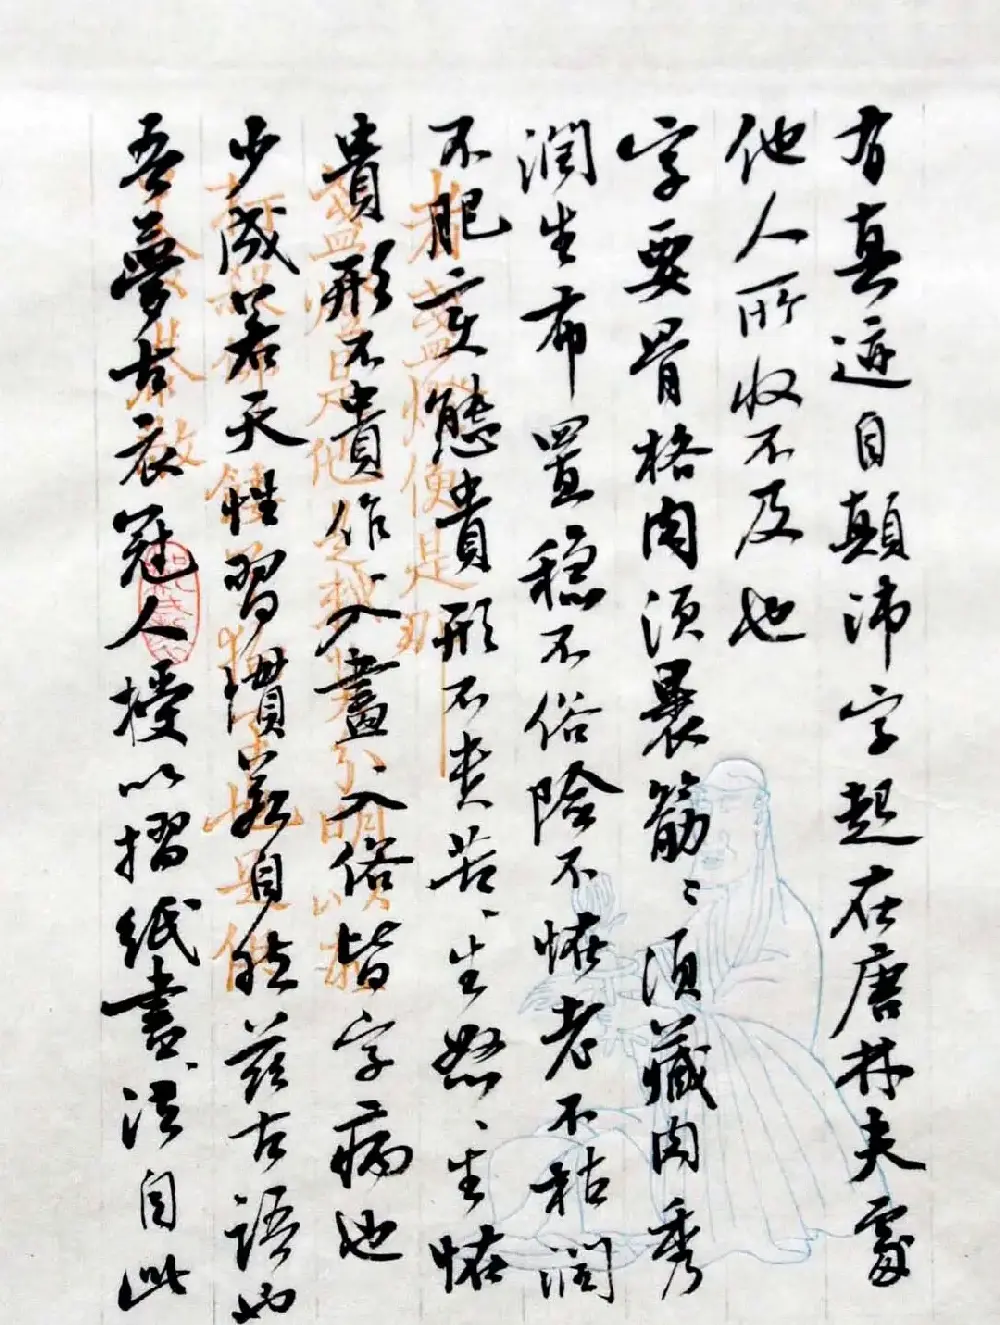 有真迹自顛沛字起在唐林夫處
他人所收不及也
字要骨格肉須裹筋〻須藏肉秀
潤生布置穩不俗險不怪老不枯潤
不肥变態貴形不贵苦〻生怒〻生怪
貴形不貴作〻入畫〻入俗皆字病也
少成若天性習慣若自然茲古語也
吾夢古衣冠人授以摺紙書〻法自此